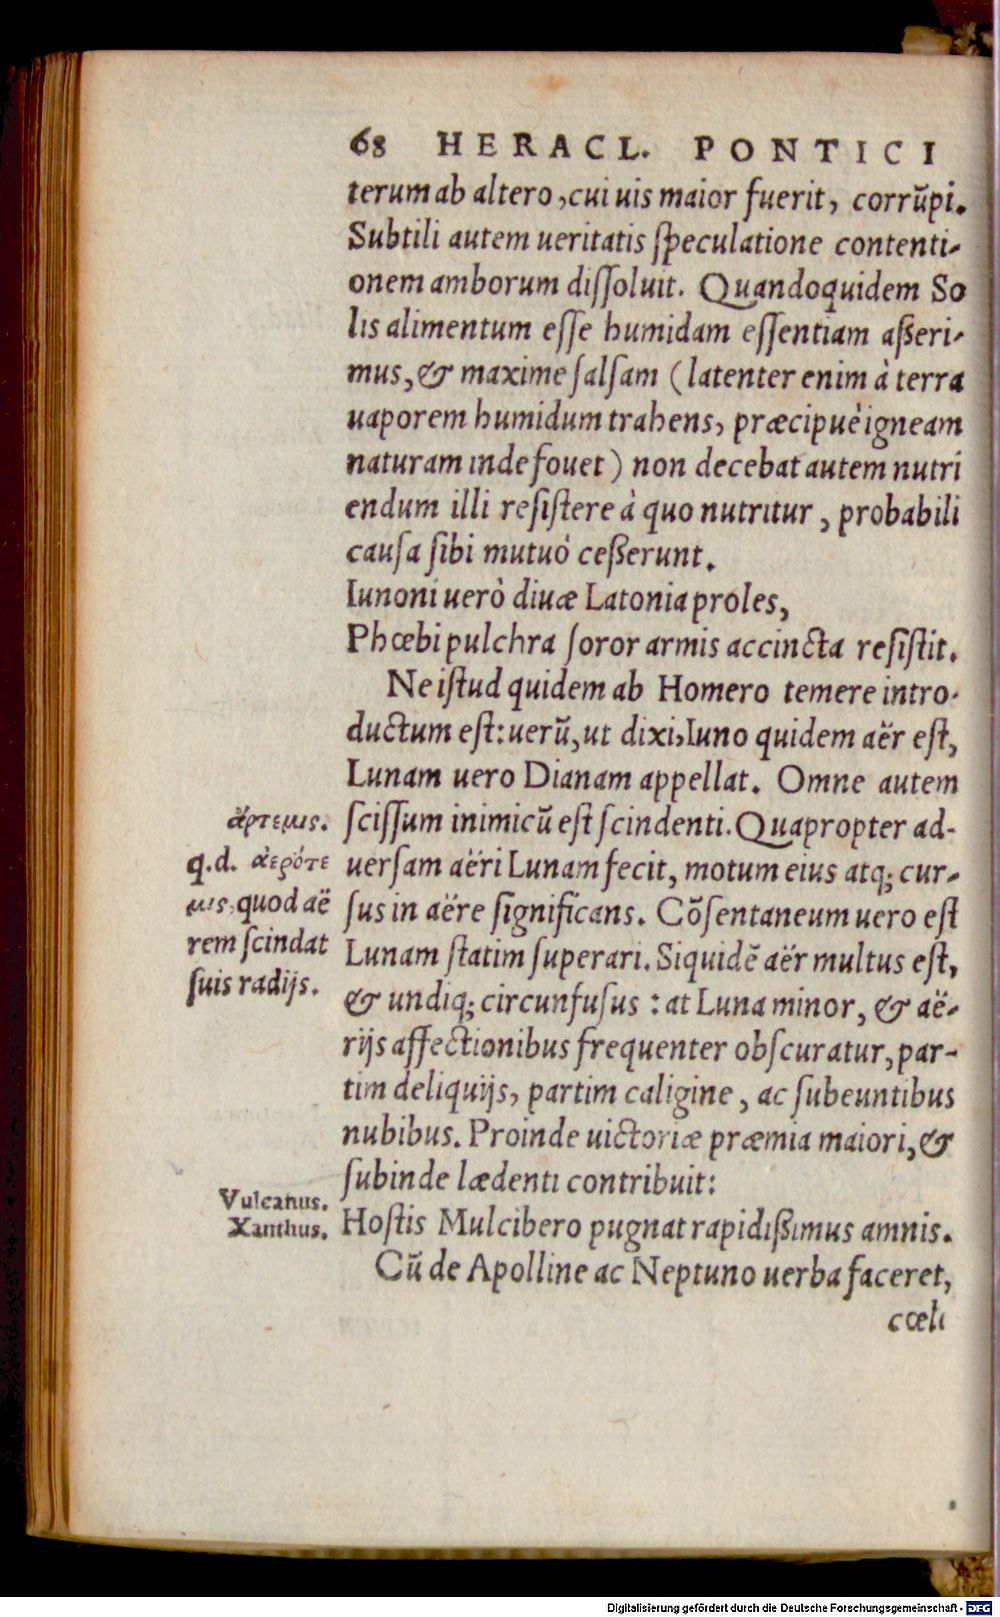 68 HERACL. PONTICI
terum ab altero, cui uis maior fuerit, corrũpi.
Subtili autem ueritatis speculatione contenti-
onem amborum dissoluit. Quandoquidem So
lis alimentum esse humidam essentiam aßeri-
mus, & maxime salsam (latenter enim à terra
uaporem humidum trahens, præcipuè igneam
naturam inde fouet) non decebat autem nutri
endum illi resistere à quo nutritur, probabili
causa sibi mutuò ceßerunt.
Iunoni uerò diuæ Latonia proles,
Phœbi pulchra soror armis accincta resistit.
Ne istud quidem ab Homero temere intro-
ductum est: uerũ, ut dixi, Iuno quidem aër est,
Lunam uero Dianam appellat. Omne autem
scissum inimicũ est scindenti. Quapropter ad-
uersam aëri Lunam fecit, motum eius atq; cur-
sus in aëre significans. Cõsentaneum uero est
Lunam statim superari. Siquidẽ aër multus est,
& undiq; circunfusus: at Luna minor, & aë-
rijs affectionibus frequenter obscuratur, par-
tim deliquijs, partim caligine, ac subeuntibus
nubibus. Proinde uictoriæ præmia maiori, &
subinde lædenti contribuit:
Hostis Mulcibero pugnat rapidißimus amnis.
Cũ de Apolline ac Neptuno uerba faceret,
cœli
ἄρτεμις.
q.d. ἀερότε
μις, quod aë
rem scindat
suis radijs.
Vulcanus.
Xanthus.
Digitalisierung gefördert durch die Deutsche Forschungsgemeinschaft - DFG